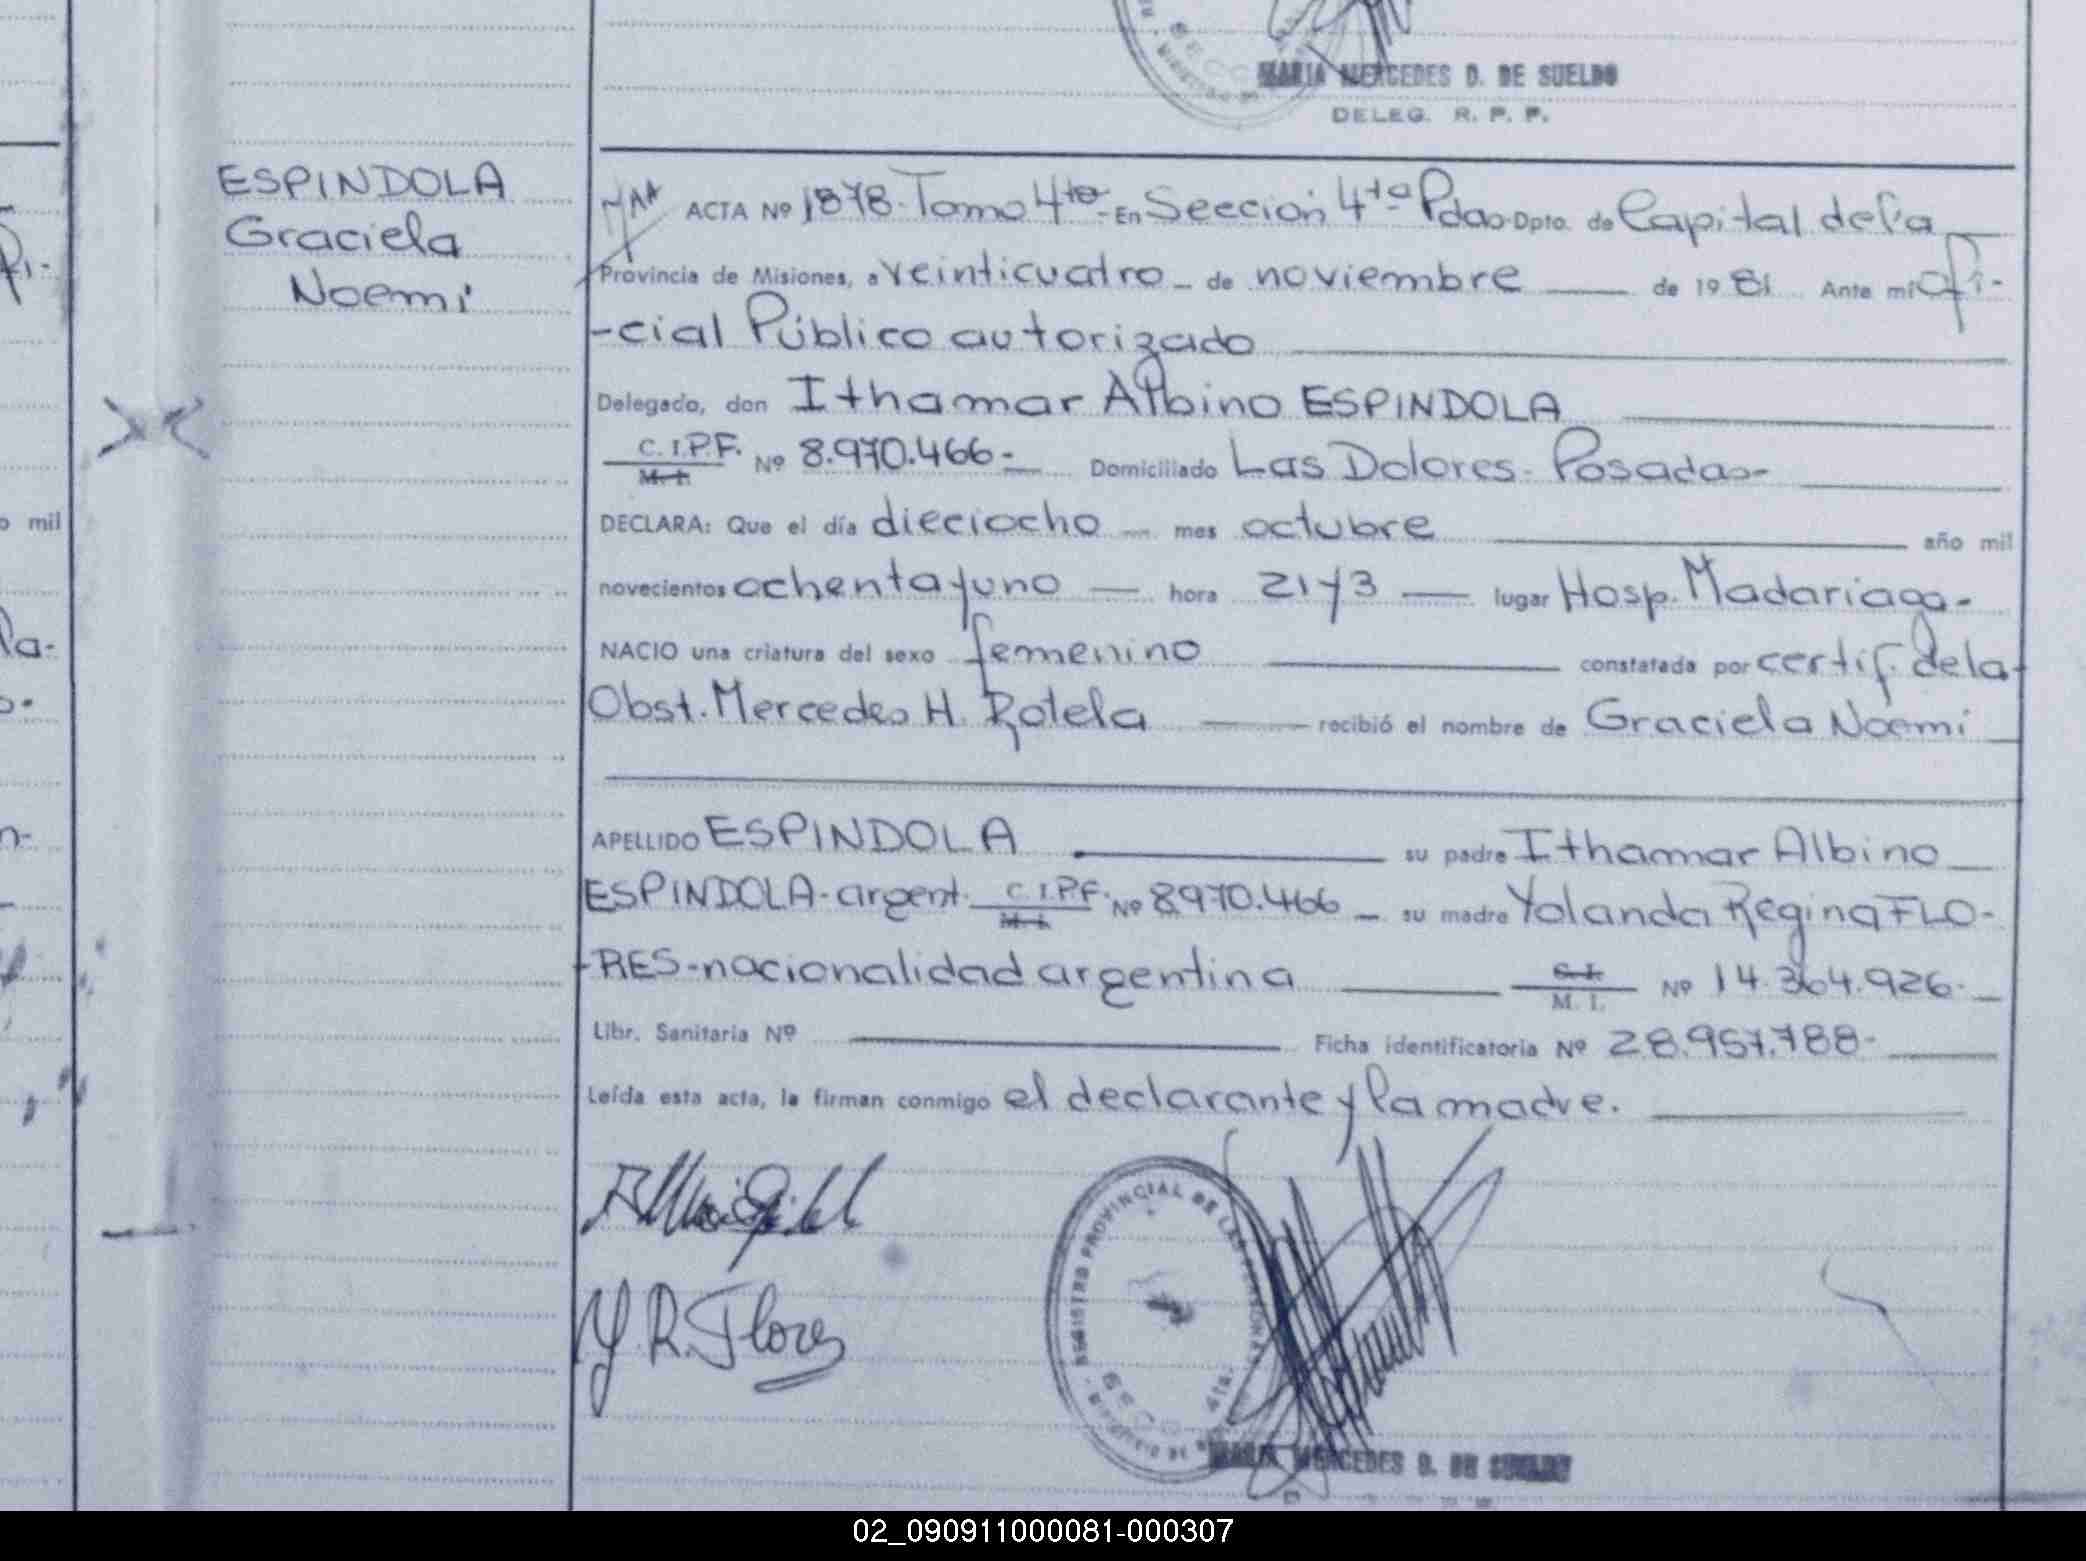 MARIA MERCEDES D. DE SUELDO
DELEG. R. P. P.
ESPINDOLA
Graciela
Noemi
ACTA Nº 1878- Tomo 4to - En Sección 4ta Pdas- Dpto. de Capital de la
Provincia de Misiones, a veinticuatro - de noviembre de 1981 Ante mi Ofi-
-cial Público autorizado
Delegado, don Ithamar Albino ESPINDOLA
C.I.P.F.
M. I. Nº 8.970.466- Domiciliado Las Dolores- Posadas-
DECLARA: Que el día dieciocho mes octubre año mil
novecientos ochenta y uno hora 21 y 3 lugar Hosp. Madariaga-
NACIO una criatura del sexo femenino constatada por certif. de la
Obst. Mercedes H. Rotela recibió el nombre de Graciela Noemi
APELLIDO ESPINDOLA su padre Ithamar Albino
ESPINDOLA- argent. C.I.P.F. Nº 8.970.466 su madre Yolanda Regina FLO-
M. I.
-RES- nacionalidad argentina C. I. Nº 14.364.926-
M. I.
Libr. Sanitaria Nº Ficha identificatoria Nº 28.957.788-
Leída esta acta, la firman conmigo el declarante y la madre.
Y. R. Flores
REGISTRO PROVINCIAL DE LAS PERSONAS
4ta.
MARIA MERCEDES D. DE SUELDO
o mil
la-
02_090911000081-000307